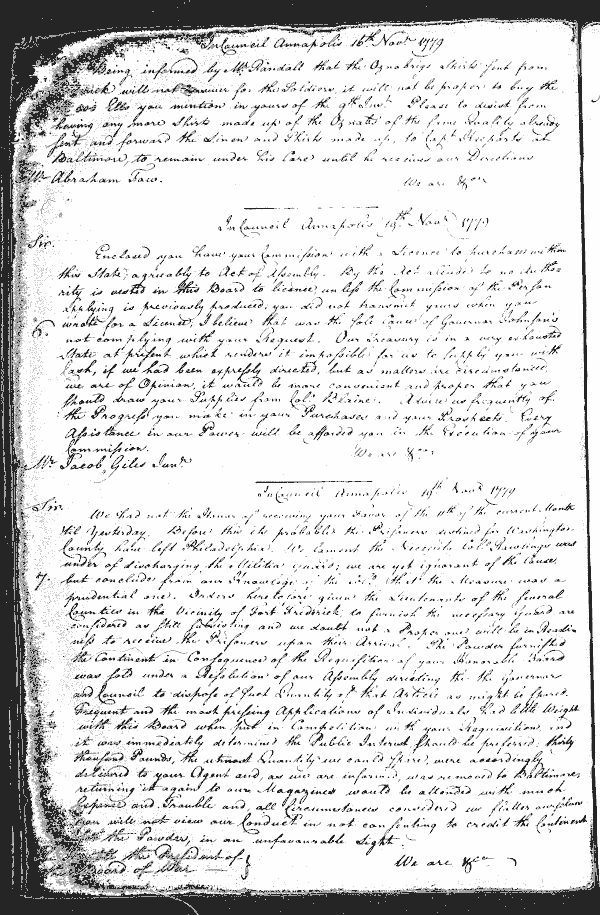 In Council Annapolis 16th Novr 1779
Being informed by Mr Randall that the Oznabrigs Shirts sent from
will not answer for the Soldiers, it will not be proper to buy the
Ells you mention in yours of the 9th Inst. Please to desist from
having any more Shirts made up of the Oznabs of the same Quality already
sent and forward the Linen and Shirts made up, to Capt Keeports at
Baltimore, to remain under his Care until he receives our Directions
We are &ca
Mr Abraham Faw.
In Council Annapolis 19th Novr 1779
Sir.
Enclosed you have your Commission with a Licence to purchase within
this State, agreably to Act of Assembly. By the Act alluded to no Autho=
rity is vested in this Board to licence, unless the Commission of the Person
applying is previously produced; you did not transmit yours when you
6. wrote for a Licence, I believe that was the sole Cause of Governor Johnson's
not complying with your Request. Our Treasury is in a very exhausted
State at present which renders it impossible for us to supply you with
Cash, if we had been expressly directed, but as matters are circumstanced,
we are of Opinion, it would be more convenient and proper that you
should draw your Supplies from Colo Blaine. Advise us frequently of
the Progress you make in your Purchases and your Prospects. Every
Assistance in our Power will be afforded you in the Execution of your
Commission.
We are &ca
Mr Jacob Giles Junr
In Council Annapolis 19th Novr 1779
Sir.
We had not the Honor of receiving your Favor of the 11th of the current Month
'til Yesterday. Before this its probable the Prisoners destined for Washington
County have left Philadelphia. We lament the Necessity Colo Rawlings was
under of discharging the Militia Guard; we are yet ignorant of the Cause,
7. but conclude from our Knowledge of the that the Measure was a
prudential one. Orders heretofore given the Lieutenants of the several
Counties in the Vicinity of Fort Frederick to furnish the necessary Guard are
considered as still subsisting and we doubt not a Proper one will be in Readi
ness to receive the Prisoners upon their Arrival. The Powder furnished
the Continent in Consequence of the Requisition of your Honorable Board
was sold under a Resolution of our Assembly directing the the Governor
and Council to dispose of such Quantity of that Article as might be spared.
Frequent and the most pressing Applications of Individuals had little Weight
with this Board when put in Competition with your Requisition, and
it was immediately determined the Public Interest should be preferred, thirty
thousand Pounds, the utmost Quantity we could spare, were accordingly
delivered to your Agent and, as we are informed, was removed to Baltimore;
returning it again to our Magazines would be attended with much
Expence and Trouble and, all Circumstances considered we flatter ourselves
you will not view our Conduct in not consenting to credit the Continent
the Powder, in an unfavourable Light.
We are &ca
the President of
Board of War